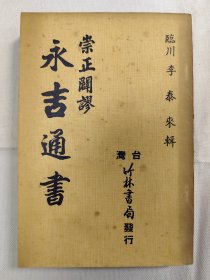 臨川李泰來輯
崇正闢謬
永吉通書
台灣
竹林書局發行